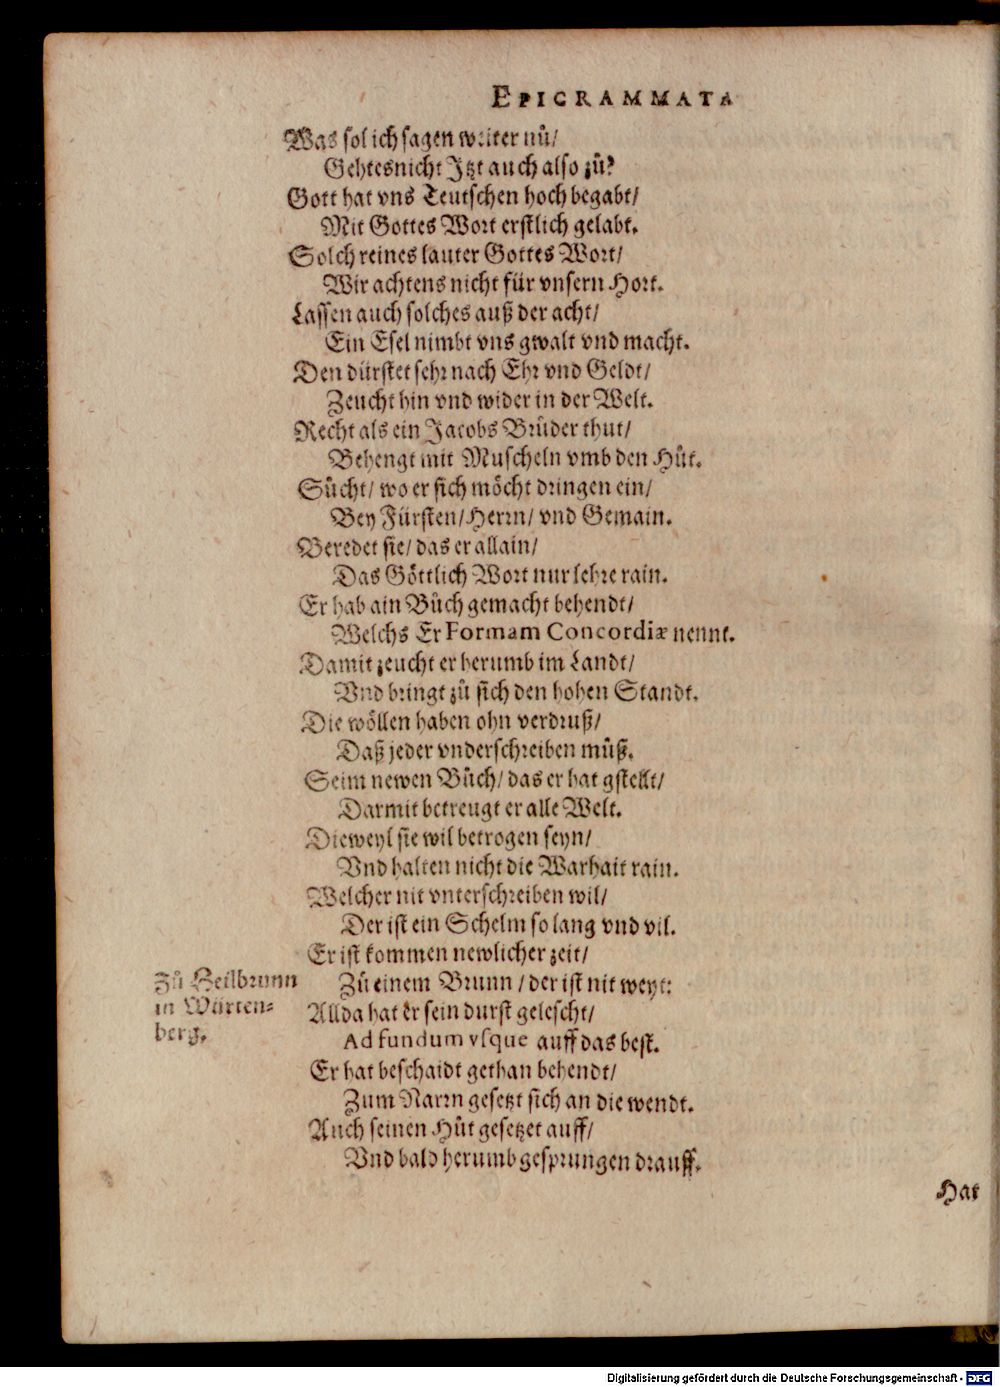 EPIGRAMMATA
Was sol ich sagen weiter nů/
Gehtes nicht Jtzt auch also zů?
Gott hat vns Teutschen hoch begabt/
Mit Gottes Wort erstlich gelabt.
Solch reines lauter Gottes Wort/
Wir achtens nicht für vnsern Hort.
Lassen auch solches auß der acht/
Ein Esel nimbt vns gwalt vnd macht.
Den dürstet sehr nach Ehr vnd Geldt/
Zeucht hin vnd wider in der Welt.
Recht als ein Jacobs Brůder thut/
Behengt mit Muscheln vmb den Hůt.
Sůcht/ wo er sich möcht dringen ein/
Bey Fürsten/ Herrn/ vnd Gemain.
Beredet sie/ das er allain/
Das Göttlich Wort nur lehre rain.
Er hab ain Bůch gemacht behendt/
Welchs Er Formam Concordiæ nennt.
Damit zeucht er herumb im Landt/
Vnd bringt zů sich den hohen Standt.
Die wöllen haben ohn verdruß/
Daß jeder vnderschreiben můß.
Seim newen Bůch/ das er hat gstellt/
Darmit betreugt er alle Welt.
Dieweyl sie wil betrogen seyn/
Vnd halten nicht die Warhait rain.
Welcher nit vnterschreiben wil/
Der ist ein Schelm so lang vnd vil.
Er ist kommen newlicher zeit/
Zů einem Brunn / der ist nit weyt:
Zů Heilbrunn
in Würten-
berg.
Allda hat er sein durst gelescht/
Ad fundum vsque auff das best.
Er hat beschaidt gethan behendt/
Zum Narrn gesetzt sich an die wendt.
Auch seinen Hůt gesetzet auff/
Vnd bald herumb gesprungen drauff.
Hat
Digitalisierung gefördert durch die Deutsche Forschungsgemeinschaft - DFG